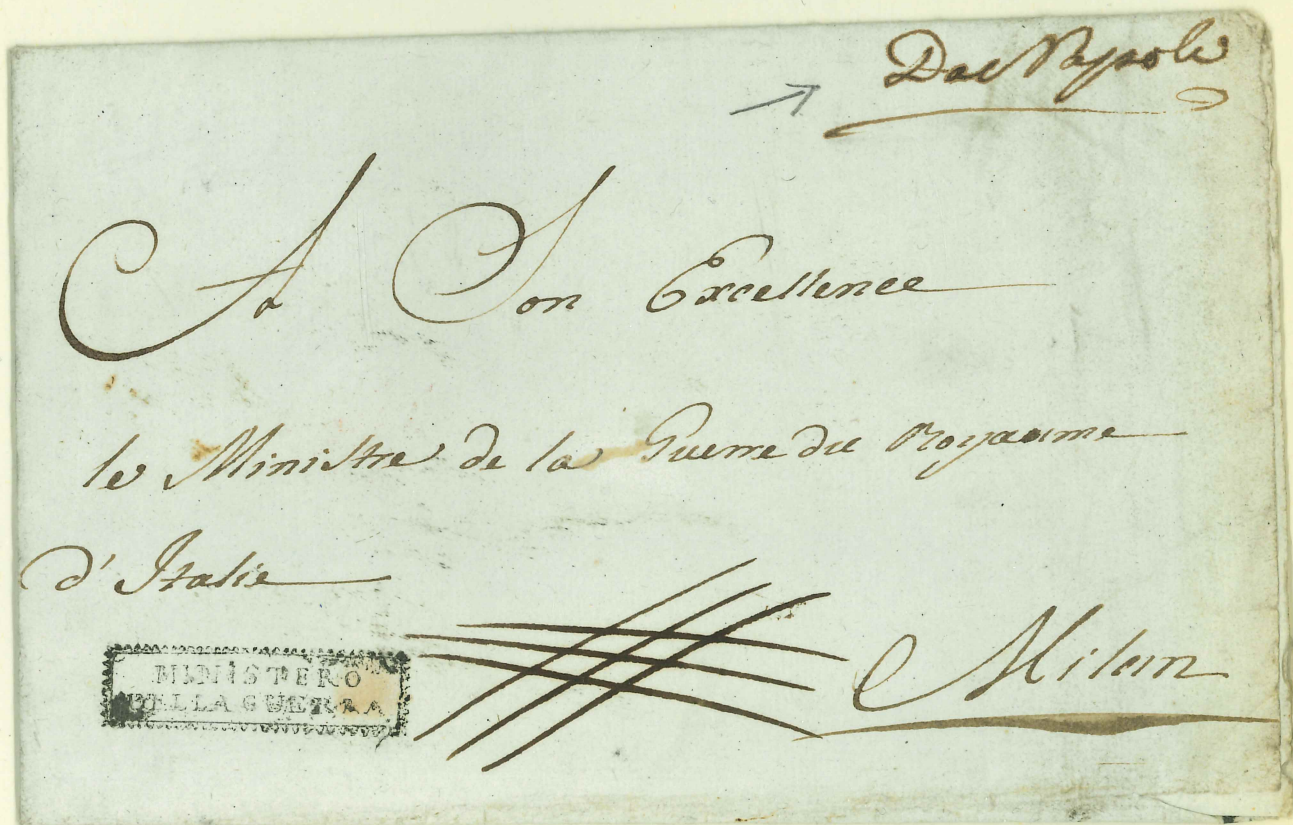 Dal Napoli
A Son Excellence
le Ministre de la Guerre du Royaume
d'Italie
MINISTERO
DELLA GUERRA
Milan